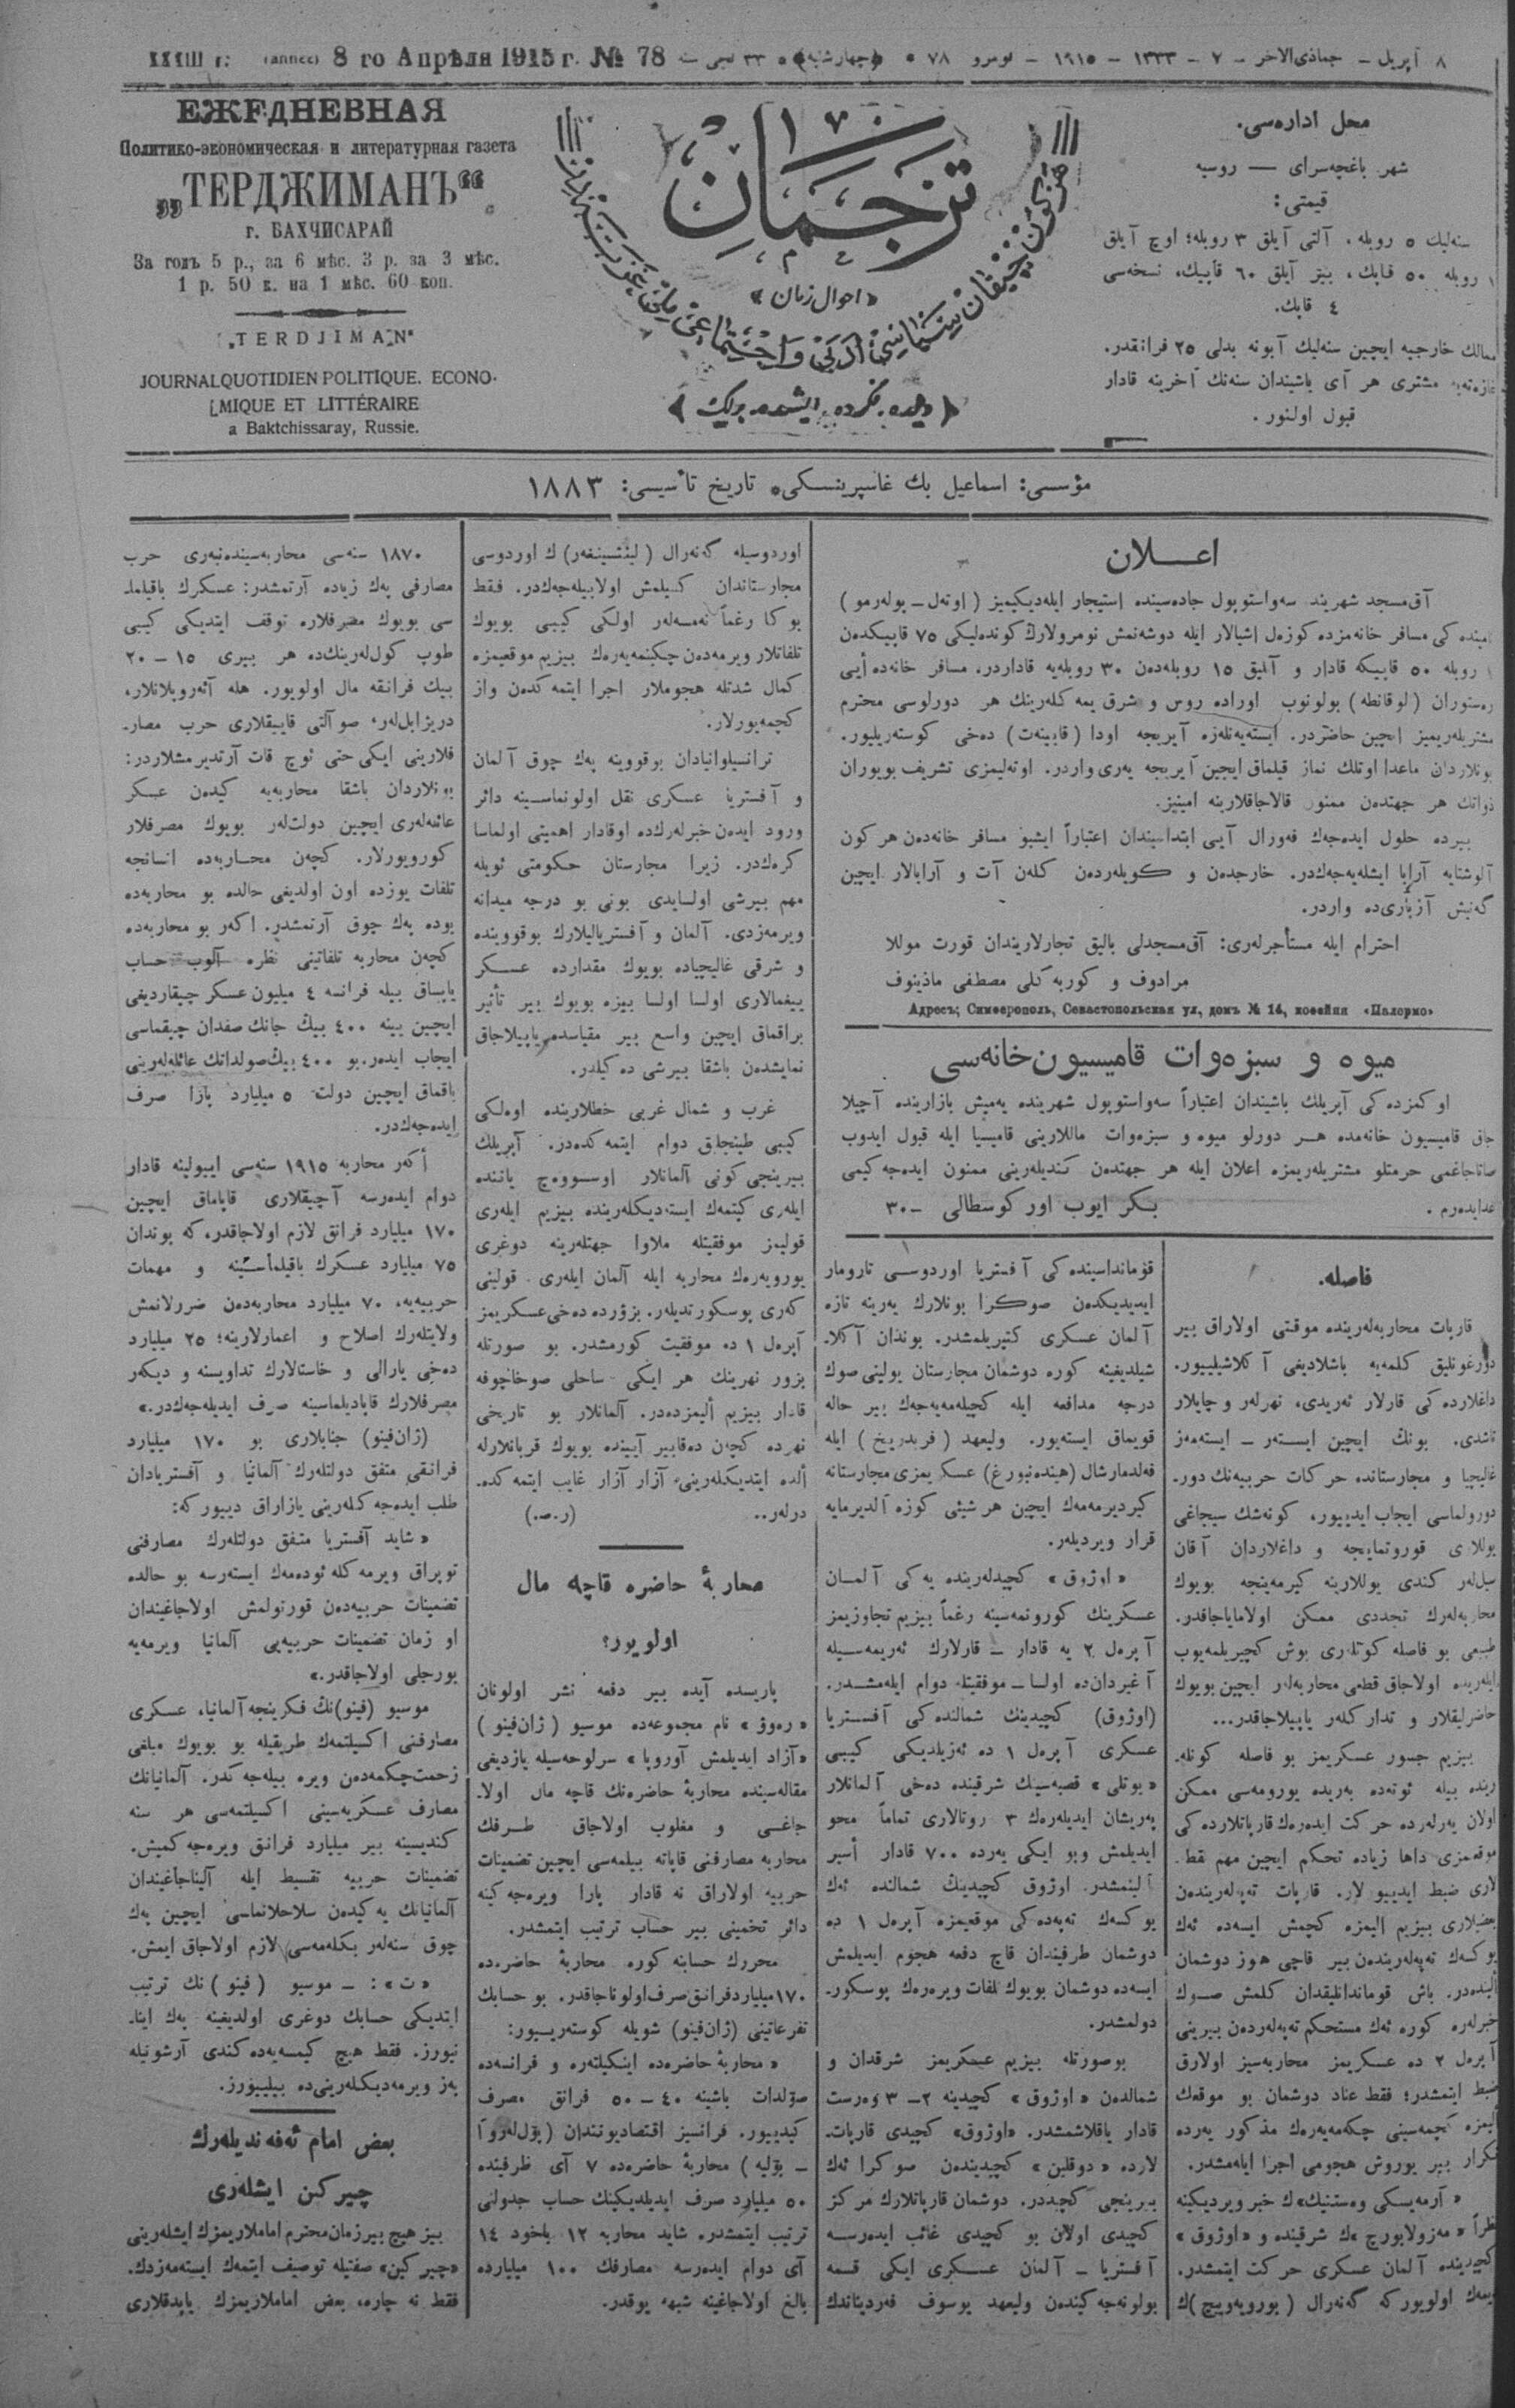 ٨ آپریل – جماذی‌الاخر – ٧ – ١٣٣٣ – ١٩١٥ – نومرو ٧٨ • ﴿چهارشنبه﴾ • ٣٣ نجی سنه
8 го Апрѣля 1915 г. № 78
(année)
XXXIII г.
ЕЖЕДНЕВНАЯ
Политико-экономическая и литературная газета
„ТЕРДЖИМАНЪ“
г. БАХЧИСАРАЙ
За годъ 5 р., за 6 мѣс. 3 р. за 3 мѣс.
1 р. 50 к. на 1 мѣс. 60 коп.
„TERDJIMAN“
JOURNAL QUOTIDIEN POLITIQUE. ECONO-
MIQUE ET LITTÉRAIRE
a Baktchissaray, Russie.
ترجمان
«احوال زمان»
﴿دیلده، فکرده، ایشده بیرلك﴾
محل اداره‌سی.
شهر باغچه‌سرای — روسیه
قیمتی:
سنه‌لیك ٥ روبله، آلتی آیلق ٣ روبله؛ اوچ آیلق
١ روبله ٥٠ قاپك، بیر آیلق ٦٠ قاپیك، نسخه‌سی
٤ قاپك.
ممالك خارجیه ایچین سنه‌لیك آبونه بدلی ٢٥ فرانقدر.
غازه‌ته‌یه مشتری هر آی باشیندان سنه‌نك آخرینه قادار
قبول اولنور.
مؤسسی: اسماعیل بك غاسپرینسکی • تاریخ تأسیسی: ١٨٨٣
اعـــلان
آق‌مسجد شهرینده سه‌واستوپول جاده‌سینده استیجار ایله‌دیکیمیز (اوته‌ل – پولەرمو)
نامینده کی مسافر خانه‌مزده کوزه‌ل اشیالار ایله دوشه‌نمش نومرولارڭ کونده‌لیکی ٧٥ قاپیکدەن
١ روبله ٥٠ قاپیکه قادار و آیلیق ١٥ روبله‌دەن ٣٠ روبله‌یه قاداردر. مسافر خانه‌ده أیی
رەستوران (لوقانطه) بولونوب اوراده روس و شرق یمه کله‌رینك هر دورلوسی محترم
مشتریله‌ریمیز ایچین حاضردر. ایسته‌یه‌نله‌ره آیریجه اودا (قابینه‌ت) ده‌خی کوسته‌ریلیور.
بونلاردان ماعدا اوتلك نماز قیلماق ایچین آیریجه یه‌ری واردر. اوته‌لیمزی تشریف بویوران
ذواتك هر جهتدەن ممنون قالاجاقلارینه امینیز.
بیرده حلول ایده‌جه‌ك فه‌ورال آیی ابتداسیندان اعتباراً ایشبو مسافر خانه‌دەن هر کون
آلوشتایه آرابا ایشله‌یه‌جه‌کدر. خارجدەن و کویله‌ردەن کله‌ن آت و آرابالار ایچین
گه‌نیش آزباری‌ده واردر.
احترام ایله مستأجرله‌ری: آق‌مسجدلی بالیق تجارلاریندان قورت موللا
مرادوف و کوربه کلی مصطفی ماذینوف
Адресъ: Симферополь, Севастопольская ул, домъ № 14, кофейня «Палермо»
میوه و سبزه‌وات قامیسیون‌خانه‌سی
او کمزده کی آپریلك باشیندان اعتباراً سه‌واستوپول شهرینده یه‌میش بازارینده آچیلا
جاق قامیسیون خانه‌مده هـــر دورلو میوه و سبزه‌وات ماللارینی قامیسیا ایله قبول ایدوب
صاتاجاغمی حرمتلو مشتریله‌ریمزه اعلان ایله هر جهتدەن کندیله‌رینی ممنون ایده‌جه کیمی
وعدایده‌رم.
بکر ایوب اور کوسطالی – ٣٠
فاصله.
قارپات محاربه‌له‌رینده موقتی اولاراق بیر
دورغونلیق کلمه‌یه باشلادیغی آ کلاشیلیور.
داغلارده کی قارلار ئه‌ریدی، نهرله‌ر و چایلار
تاشدی. بونڭ ایچین ایسته‌ر – ایسته‌مه‌ز
غالیچیا و مجارستانده حر کات حربیه‌نك دور.
دورولماسی ایجاب ایدییور، کونه‌شك سیجاغی
یوللاری قوروتمایجه و داغلاردان آقان
سیل‌له‌ر کندی یوللارینه کیرمه‌ینجه بویوك
محاربه‌له‌رك تجددی ممکن اولامایاجاقدر.
طبیعی بو فاصله کونله‌ری بوش کچیریلمه‌یوب
ایله‌ریده اولاجاق قطعی محاربه‌له‌ر ایچین بویوك
حاضرلیقلار و تدار کله‌ر یاپیلاجاقدر...
بیزیم جسور عسکریمز بو فاصله کونله.
رینده بیله ئوته‌ده به‌ریده یورومه‌سی ممکن
اولان یه‌رله‌رده حر کت ایده‌ره‌ك قارپاتلارده کی
موقعمزی داها زیاده تحکم ایچین مهم نقط.
لاری ضبط ایدییو لار. قارپات ته‌په‌له‌ریندەن
بعضیلاری بیزیم الیمزه کچمش ایسه‌ده ئه‌ك
یوکسه‌ك ته‌په‌له‌ریندەن بیر قاچی هنوز دوشمان
ألینده‌در. باش قوماندانلیقدان کلمش صـوك
خبرله‌ره کوره ئه‌ك مستحکم ته‌په‌له‌ردەن بیرینی
آپره‌ل ٢ ده عسکریمز محاربه‌سیز اولارق
ضبط ایتمشدر؛ فقط عناد دوشمان بو موقعك
ألیمزه کچمه‌سینی چکه‌مه‌یه‌ره‌ك مذکور یه‌رده
تکرار بیر یوروش هجومی اجرا ایله‌مشدر.
«آرمه‌یسکی وه‌ستنیك»ك خبر ویردیکینه
نظراً «مه‌زولابورچ»ك شرقینده و «اوژوق»
کچیدینده آلمان عسکری حرکت ایتمشدر.
دیمه‌ك اولویور که گه‌نه‌رال (بورویه‌ویچ)ك
قوماندا‌سینده کی آفستریا اوردوسی تارومار
ایدیدیکدەن صوکرا بونلارك یه‌رینه تازه
آلمان عسکری کتیریلمشدر. بوندان آکلا.
شیلدیغینه کوره دوشمان مجارستان یولینی صوك
درجه مدافعه ایله کچیله‌مه‌یه‌جه‌ك بیر حاله
قویماق ایسته‌یور. ولیعهد (فریدریخ) ایله
فه‌لدمارشال (هینده‌نبورغ) عسکریمزی مجارستانه
کیردیرمه‌مه‌ك ایچین هر شیئی کوزه آلدیرمایه
قرار ویردیله‌ر.
«اوژوق» کچیدله‌رینده یه کی آلمـان
عسکرینك کورونمه‌سینه رغماً بیزیم تجاوزیمز
آپره‌ل ٢ یه قادار – قارلارك ئه‌ریمه‌ســیله
آغیردان‌ده اولسا – موفقیتله دوام ایله‌مشــدر.
(اوژوق) کچیدینك شمالنده کی آفستریا
عسکری آپره‌ل ١ ده ئه‌زیلدیکی کیبی
«بوتلی» قصبه‌سینك شرقینده ده‌خی آلمانلار
پریشان ایدیله‌ره‌ك ٣ روتالاری تماماً محو
ایدیلمش وبو ایکی یه‌رده ٧٠٠ قادار أسیر
آلینمشدر. اوژوق کچیدینك شمالنده ئه‌ك
یوکسه‌ك ته‌په‌ده کی موقعیمزه آپره‌ل ١ ده
دوشمان طرفیندان قاچ دفعه هجوم ایدیلمش
ایسه‌ده دوشمان بویوك تلفات ویره‌ره‌ك پوسکور.
دولمشدر.
بوصورتله بیزیم عسکریمز شرقدان و
شمالدەن «اوژوق» کچیدینه ٢ – ٣ وه‌رست
قادار یاقلاشمشدر. «اوژوق» کچیدی قارپات.
لارده «دوقلین» کچیدیندەن صوکرا ئه‌ك
بیرینجی کچیددر. دوشمان قارپاتلارك مرکز
کچیدی اولان بو کچیدی غائب ایده‌رسه
آفستریا – آلمان عسـکری ایکی قسمه
بولونه‌جه کیندەن ولیعهد یوسوف فه‌ردیناندك
اوردوسیله گه‌نه‌رال (لینسینغه‌ر) ك اوردوسی
مجارستاندان کسیلمش اولابیله‌جه‌كدر. فقط
بو کا رغماً نه‌مسه‌له‌ر اولکی کیبی بویوك
تلفاتلار ویرمه‌دەن چکینمه‌یه‌ره‌ك بیزیم موقعیمزه
کمال شدتله هجوملار اجرا ایتمه کدەن واز
کچمه‌یورلار.
ترانسیلوانیادان بوقووینه په‌ك چوق آلمان
و آفستریا عسکری نقل اولونماسـینه دائر
ورود ایدەن خبرله‌رك‌ده اوقادار اهمیتی اولماسا
کره‌کدر. زیرا مجارستان حکومتی ئویله
مهم بیرشی اولسایدی بونی بو درجه میدانه
ویرمه‌زدی. آلمان و آفستریالیلارك بوقووینده
و شرقی غالیچیاده بویوك مقدارده عسـکر
ییغمالاری اولسا اولسا بیزه بویوك بیر تأثیر
براقماق ایچین واسع بیر مقیاسده یاپیلاجاق
نمایشدەن باشقا بیرشی ده کیلدر.
غرب و شمال غربی خطلارینده اوه‌لکی
کیبی طینجلق دوام ایتمه کده‌در. آپریلك
بیرینجی کونی آلمانلار اوســووه‌چ یاننده
ایله‌ری کیتمه‌ك ایسته‌دیکله‌رینده بیزیم ایله‌ری
قولیمز موفقیتله ملاوا جهتله‌رینه دوغری
یورویه‌ره‌ك محاربه ایله آلمان ایله‌ری قولینی
که‌ری پوسکورتدیله‌ر. بزوره‌ده ده‌خی عسکریمز
آپره‌ل ١ ده موفقیت کورمشدر. بو صورتله
بزور نهرینك هر ایکی ساحلی صوخاچوفه
قادار بیزیم ألیمزده‌در. آلمانلار بو تاریخی
نهرده کچه‌ن ده‌قابیر آیینده بویوك قربانلارله
ألده ایتدیکله‌رینی آزار آزار غایب ایتمه کده.
درله‌ر..
(ر.ص.)
محاربهٔ حاضره قاچه مال
اولویور؟
پاریسده آیده بیر دفعه نشر اولونان
«ره‌وؤ» نام مجموعه‌ده موسیو (ژان‌فینو)
«آزاد ایدیلمش آوروپا» سرلوحه‌سیله یازدیغی
مقاله‌سینده محاربهٔ حاضره‌نك قاچه مال اولا.
جاغی و مغلوب اولاجاق طـرفك
محاربه مصارفنی قاپاته بیلمه‌سی ایچین تضمینات
حربیه اولاراق نه قادار پارا ویره‌جه کینه
دائر تخمینی بیر حساب ترتیب ایتمشدر.
محررك حسابنه کوره محاربهٔ حاضره‌ده
١٧٠ میلیارد فرانق صرف اولوناجاقدر. بو حسابك
تفرعاتینی (ژان‌فینو) شویله کوسته‌ریـیور:
«محاربهٔ حاضره‌ده اینکیلته‌ره و فرانسه‌ده
صؤلدات باشینه ٤٠ – ٥٠ فرانق مصرف
کیدییور. فرانسیز اقتصادیونندان (پؤل‌له‌روآ
– بؤلیه) محاربهٔ حاضره‌ده ٧ آی ظرفینده
٥٠ میلیارد صرف ایدیلدیکینك حساب جدولنی
ترتیب ایتمشدر. شاید محاربه ١٢ یاخود ١٤
آی دوام ایده‌رسه مصارفك ١٠٠ میلیارده
بالغ اولاجاغینه شبهه یوقدر.
١٨٧٠ سنه‌سی محاربه‌سیندەنبه‌ری حرب
مصارفی په‌ك زیاده آرتمشدر: عسکرك باقیلما.
سی بویوك مصرفلاره توقف ایتدیکی کیبی
طوپ کول‌له‌رینك‌ده هر بیری ١٥ – ٢٠
بیك فرانقه مال اولویور. هله آئه‌روپلانلار،
دریژابل‌له‌ر، صو آلتی قاییقلاری حرب مصار.
فلارینی ایکی حتی ئوچ قات آرتدیرمشلاردر:
بونلاردان باشقا محاربه‌یه کیدەن عسکر
عائله‌له‌ری ایچین دولت‌له‌ر بویوك مصرفلار
کورویورلار. کچه‌ن محـاربه‌ده انسانجه
تلفات یوزده اون اولدیغی حالده بو محاربه‌ده
بوده په‌ك چوق آرتمشدر. اکه‌ر بو محاربه‌ده
کچه‌ن محاربه تلفاتینی نظره آلوب حساب
یاپساق بیله فرانسه ٤ میلیون عسکر چیقاردیغی
ایچین یینه ٤٠٠ بیڭ جانك صفدان چیقماسی
ایجاب ایده‌ر. بو ٤٠٠ بیڭ صولداتك عائله‌له‌رینی
باقماق ایچین دولت ٥ میلیارد پارا صرف
ایده‌جه‌كدر.
أکه‌ر محاربه ١٩١٥ سنه‌سی ایبولینه قادار
دوام ایده‌رسه آچیقلاری قاپاماق ایچین
١٧٠ میلیارد فرانق لازم اولاجاقدر، که بوندان
٧٥ میلیارد عسکرك باقیلمأسـینه و مهمات
حربیه‌یه، ٧٠ میلیارد محاربه‌دەن ضررلانمش
ولایتله‌رك اصلاح و اعمارلارینه؛ ٢٥ میلیارد
ده‌خی یارالی و خاستالارك تداویسنه و دیکه‌ر
مصرفلارك قاپادیلماسینه صرف ایدیله‌جه‌كدر.»
(ژان‌فینو) جنابلاری بو ١٧٠ میلیارد
فرانقی متفق دولتله‌رك آلمانیا و آفستریادان
طلب ایده‌جه کله‌رینی یازاراق دییور که:
«شاید آفستریا متفق دولتله‌رك مصارفنی
توپراق ویرمه کله ئوده‌مه‌ك ایسته‌رسه بو حالده
تضمینات حربیه‌دەن قورتولمش اولاجاغیندان
او زمان تضمینات حربیه‌یی آلمانیا ویرمه‌یه
بورجلی اولاجاقدر.»
موسیو (فینو)نڭ فکرینجه آلمانیا، عسکری
مصارفنی اکسیلتمه‌ك طریقیله بو بویوك مبلغی
زحمت‌چکمه‌دەن ویره بیله‌جه‌كدر. آلمانیانك
مصارف عسکریه‌سینی اکسیلتمه‌سی هر سنه
کندیسینه بیر میلیارد فرانق ویره‌جه کمیش.
تضمینات حربیه تقسیط ایله آلیناجأغیندان
آلمانیانك یه کیدەن سلاحلانماسی ایچین په‌ك
چوق سنه‌له‌ر بکله‌مه‌سی لازم اولاجاق ایمش.
«ت»: – موسیو (فینو) نك ترتیب
ایتدیکی حسابك دوغری اولدیغینه په‌ك اینا.
نیورز. فقط هیچ کیمسه‌یه‌ده کندی آرشونیله
به‌ز ویرمه‌دیکله‌رینی‌ده بیلییورز.
بعض امام ئه‌فه‌ندیله‌رك
چیرکن ایشله‌ری
بیز هیچ بیر زمان محترم اماملاریمزك ایشله‌رینی
«چیرکین» صفتیله توصیف ایتمه‌ك ایسته‌مه‌زدك.
فقط نه چاره، بعض اماملاریمزك یاپدقلاری